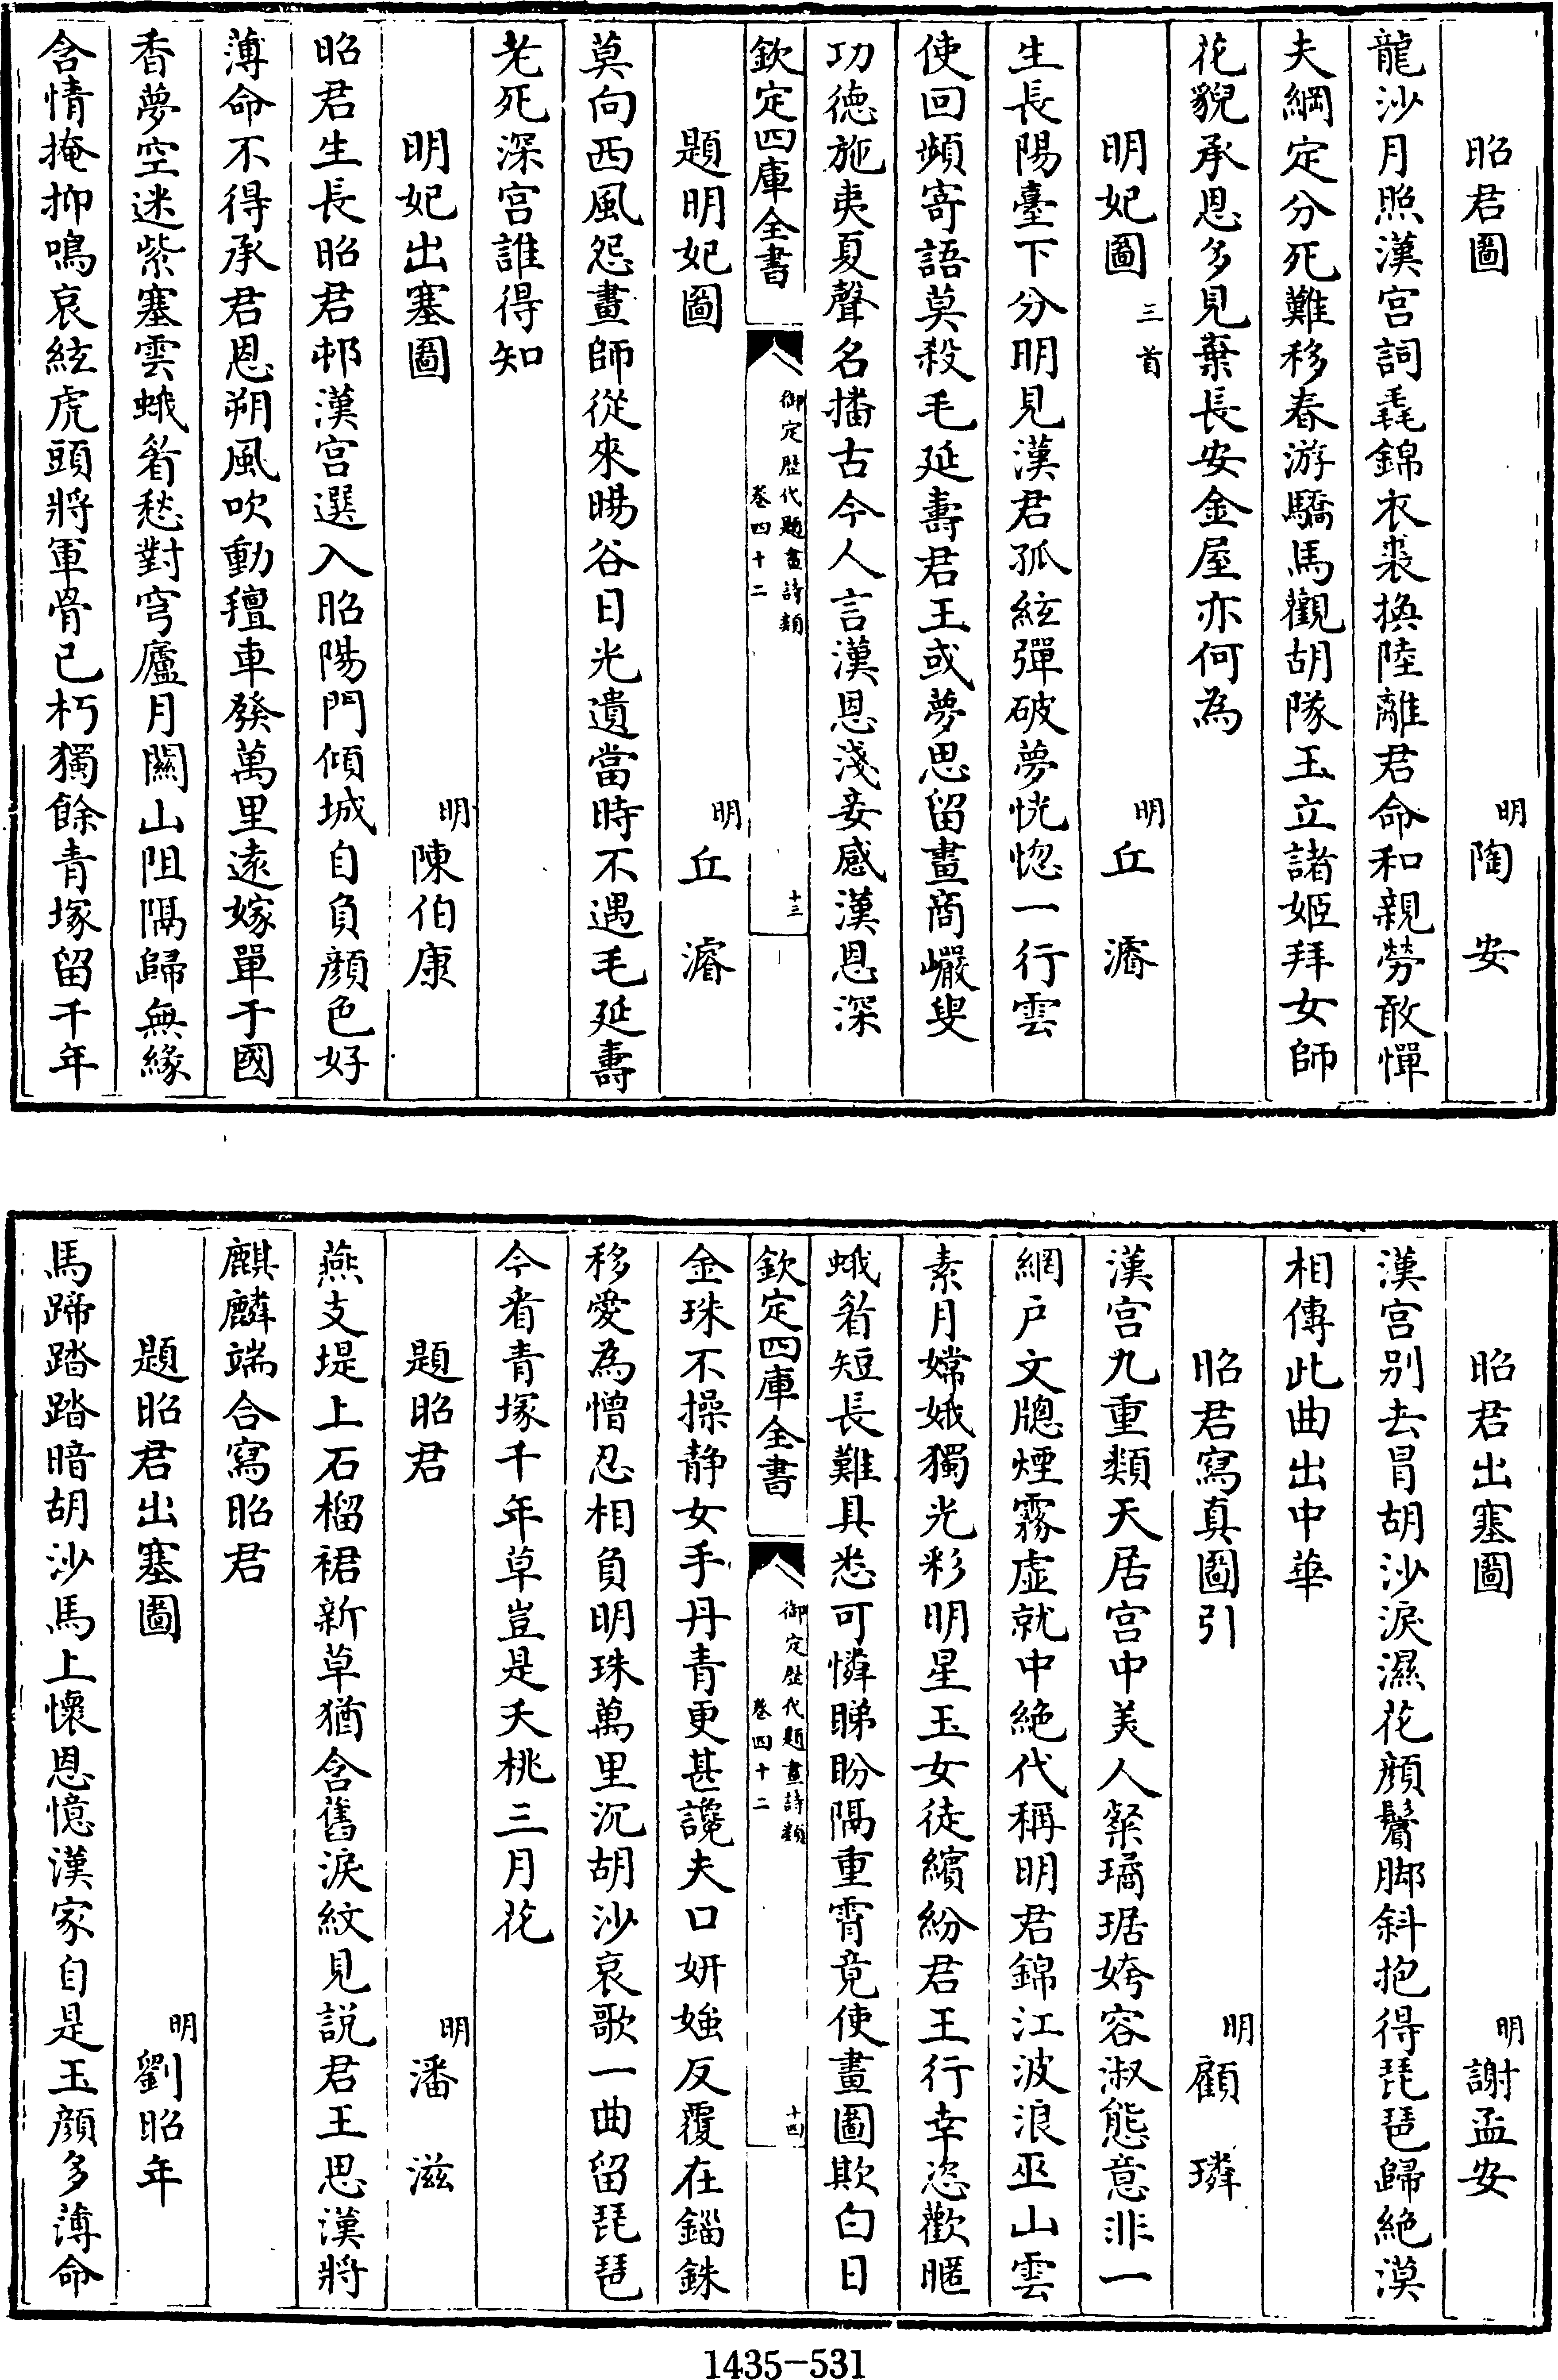 昭君圖　明陶　安
龍沙月照漢宫詞毳錦衣裘換陸離君命和親勞敢憚
夫綱定分死難移春游驕馬觀胡隊玉立諸姬拜女師
花貌承恩多見棄長安金屋亦何為
明妃圖三首　明丘　濬
生長陽臺下分明見漢君孤絃彈破夢恍惚一行雲
使回頻寄語莫殺毛延壽君王或夢思留畫商巖叟
功德施夷夏聲名播古今人言漢恩淺妾感漢恩深
欽定四庫全書　御定歷代題畫詩類　卷四十二　十三
題明妃圖　明丘　濬
莫向西風怨畫師從來暘谷日光遺當時不遇毛延壽
老死深宫誰得知
明妃出塞圖　明陳伯康
昭君生長昭君邨漢宫選入昭陽門傾城自負顔色好
薄命不得承君恩朔風吹動氊車發萬里逺嫁單于國
香夢空迷紫塞雲蛾眉愁對穹廬月關山阻隔歸無緣
含情掩抑鳴哀絃虎頭將軍骨已朽獨餘青塚留千年
昭君出塞圖　明謝孟安
漢宫别去冒胡沙淚濕花顔鬢脚斜抱得琵琶歸絶漠
相傳此曲出中華
昭君寫真圖引　明顧　璘
漢宫九重類天居宫中美人粲璚琚姱容淑態意非一
網户文牎煙霧虚就中絶代稱明君錦江波浪巫山雲
素月嫦娥獨光彩明星玉女徒繽紛君王行幸恣歡暱
蛾眉短長難具悉可憐睇盼隔重霄竟使畫圖欺白日
欽定四庫全書　御定歷代題畫詩類　卷四十二　十四
金珠不操静女手丹青更甚讒夫口妍媸反覆在錙銖
移愛為憎忍相負明珠萬里沉胡沙哀歌一曲留琵琶
今看青塚千年草豈是夭桃三月花
題昭君　明潘　滋
燕支堤上石榴裙新草猶含舊淚紋見説君王思漢將
麒麟端合寫昭君
題昭君出塞圖　明劉昭年
馬蹄踏踏暗胡沙馬上懷恩憶漢家自是玉顔多薄命
1435-531